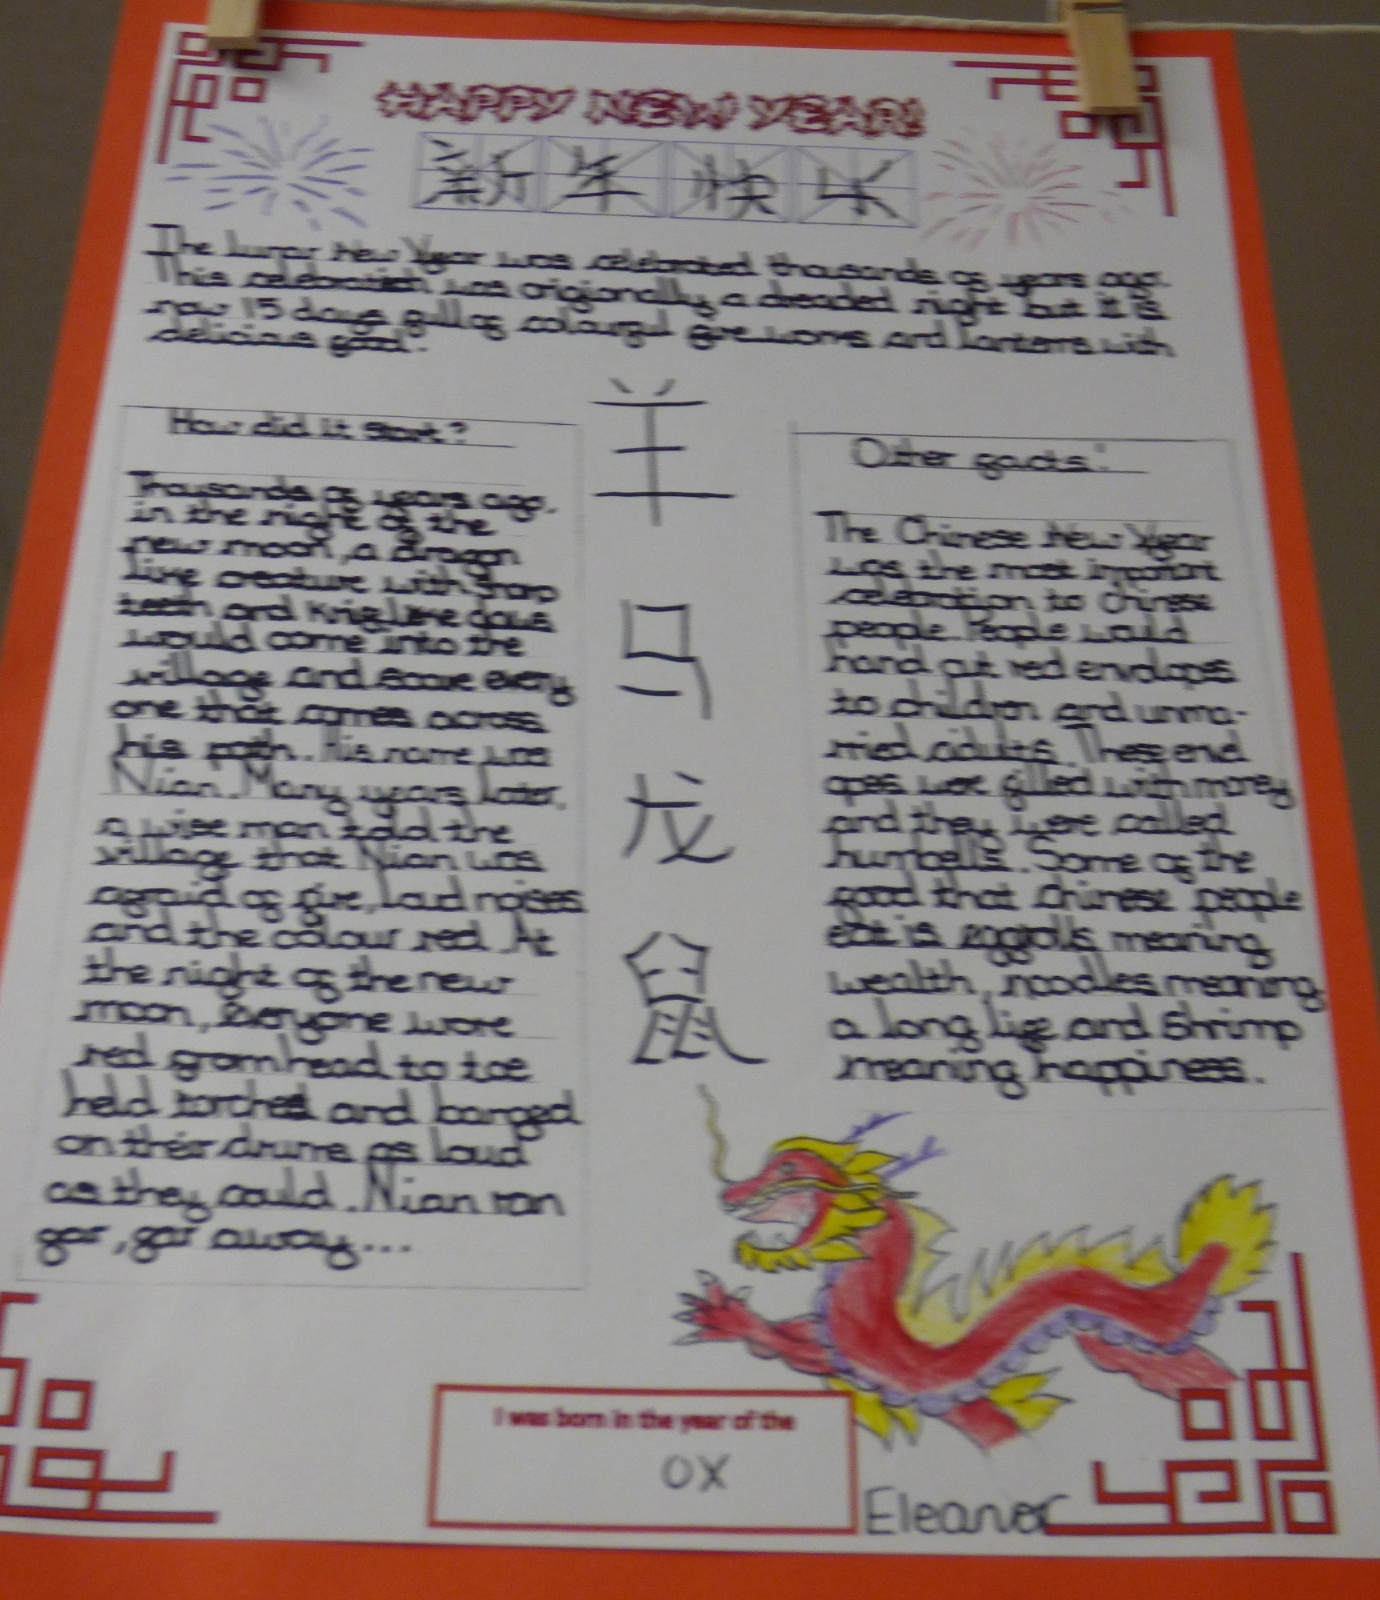 HAPPY NEW YEAR!
新年快乐
The Lunar New Year was celebrated thousands of years ago.
This celebration was origionally a dreaded night but it is
now 15 days full of colourful fireworks and lanterns with
delicious food.
How did it start?
Thousands of years ago,
in the night of the
new moon, a dragon
like creature with sharp
teeth and knife like claws
would come into the
village and scare every
one that comes across
his path. His name was
Nian. Many years later,
a wise man told the
village that Nian was
afraid of fire, loud noises
and the colour red. At
the night of the new
moon, everyone wore
red from head to toe
held torches and banged
on their drums as loud
as they could. Nian ran
far, far away...
羊
马
龙
鼠
Other facts:
The Chinese New Year
was the most important
celebration to Chinese
people. People would
hand out red envolopes
to children and unma-
rried adults. These envl
opes were filled with money
and they were called
Some of the
food that chinese people
eat is eggrolls meaning
wealth, noodles meaning
a long life and shrimp
meaning happiness.
I was born in the year of the
OX
Eleanor